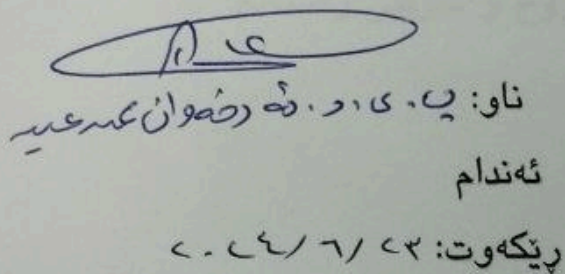 ناو: پ. ی. د. ئەرخەوان عبد
ئەندام
ڕێکەوت: ٢٣ /٦ /٢٠٢٤